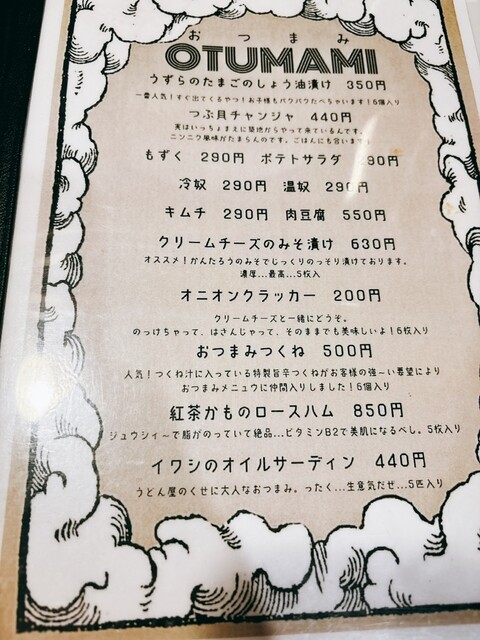 おつまみ
OTUMAMI
うずらのたまごのしょう油漬け 350円
一番人気！すぐ出てくるやつ！お子様もパクパクたべちゃいます！6個入り
つぶ貝チャンジャ 440円
実はいっちょまえに築地からやって来ているんです。
ニンニク風味がたまらんのです。ごはんにも合います
もずく 290円 ポテトサラダ 290円
冷奴 290円 温奴 290円
キムチ 290円 肉豆腐 550円
クリームチーズのみそ漬け 630円
オススメ！かんたろうのみそでじっくりのっそり漬けております。
濃厚...最高...5枚入
オニオンクラッカー 200円
クリームチーズと一緒にどうぞ。
のっけちゃって、はさんじゃって、そのままでも美味しいよ！6枚入り
おつまみつくね 500円
人気！つくね汁に入っている特製旨辛つくねがお客様の強〜い要望により
おつまみメニュウに仲間入りしました！6個入り
紅茶かものロースハム 850円
ジュウシィ〜で脂がのっていて絶品...ビタミンB2で美肌になるべし。5枚入り
イワシのオイルサーディン 440円
うどん屋のくせに大人なおつまみ。ったく...生意気だぜ...5匹入り